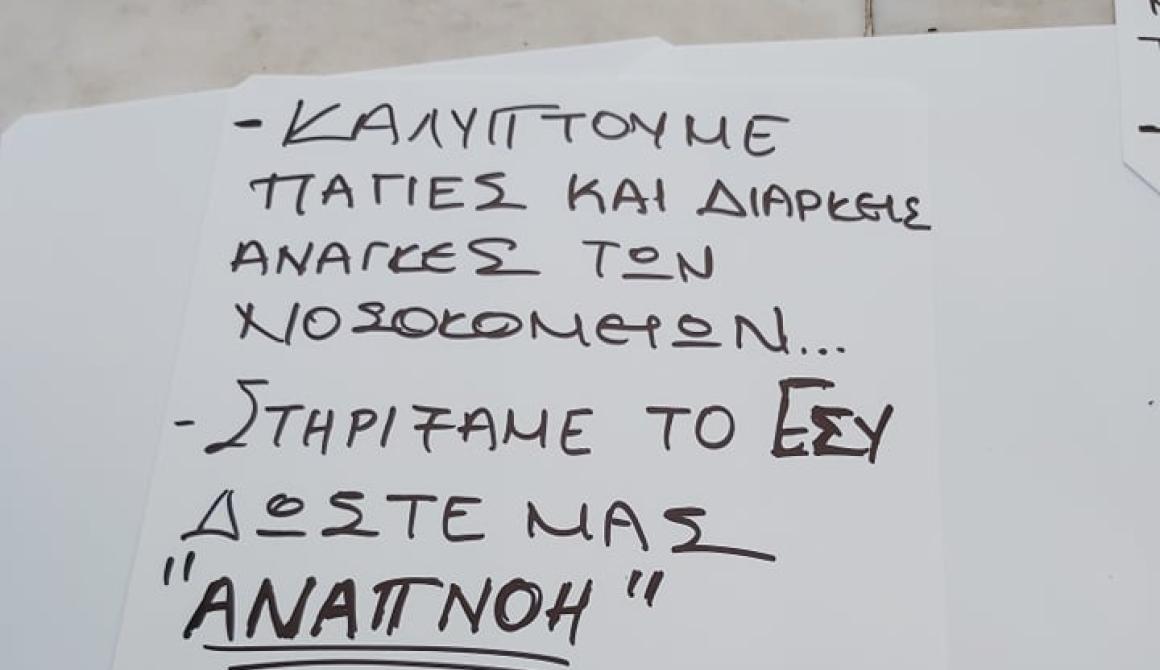 - ΚΑΛΥΠΤΟΥΜΕ
ΠΑΓΙΕΣ ΚΑΙ ΔΙΑΡΚΕΙΣ
ΑΝΑΓΚΕΣ ΤΩΝ
ΝΟΣΟΚΟΜΕΙΩΝ...
- ΣΤΗΡΙΞΑΜΕ ΤΟ ΕΣΥ
ΔΩΣΤΕ ΜΑΣ
"ΑΝΑΠΝΟΗ"